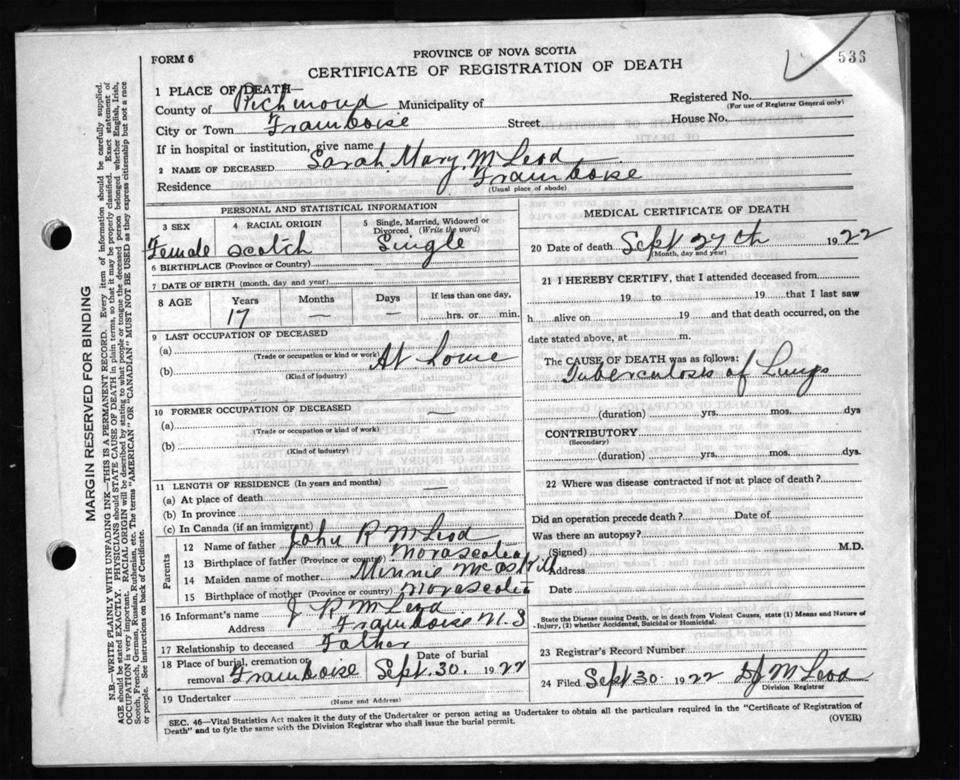 536
FORM 6
PROVINCE OF NOVA SCOTIA
CERTIFICATE OF REGISTRATION OF DEATH
1 PLACE OF DEATH—
County of Richmond Municipality of
Registered No.
(For use of Registrar General only)
City or Town Framboise Street
House No.
If in hospital or institution, give name
2 NAME OF DECEASED Sarah Mary McLeod
Residence Framboise
(Usual place of abode)
PERSONAL AND STATISTICAL INFORMATION
3 SEX
Female
4 RACIAL ORIGIN
Scotch
5 Single, Married, Widowed or
Divorced. (Write the word)
Single
6 BIRTHPLACE (Province or Country)
7 DATE OF BIRTH (month, day and year)
8 AGE
Years Months Days If less than one day,
17 — — hrs. or min.
9 LAST OCCUPATION OF DECEASED
(a)
(Trade or occupation or kind of work)
At Home
(b)
(Kind of industry)
10 FORMER OCCUPATION OF DECEASED —
(a)
(Trade or occupation or kind of work)
(b)
(Kind of industry)
11 LENGTH OF RESIDENCE (In years and months)
(a) At place of death —
(b) In province
(c) In Canada (if an immigrant)
Parents
12 Name of father John R McLeod
13 Birthplace of father (Province or country) Nova Scotia
14 Maiden name of mother Minnie McAskill
15 Birthplace of mother (Province or country) Nova Scotia
16 Informant's name J R McLeod
Address Framboise N.S
17 Relationship to deceased Father
18 Place of burial, cremation or
removal Framboise
Date of burial
Sept. 30. 1922
19 Undertaker
(Name and Address)
MEDICAL CERTIFICATE OF DEATH
20 Date of death Sept 27th 1922
(Month, day and year)
21 I HEREBY CERTIFY, that I attended deceased from
19 to 19 that I last saw
h alive on 19 and that death occurred, on the
date stated above, at m.
The CAUSE OF DEATH was as follows:
Tuberculosis of Lungs
(duration) yrs. mos. dys
CONTRIBUTORY
(Secondary)
(duration) yrs. mos. dys.
22 Where was disease contracted if not at place of death?
Did an operation precede death? Date of
Was there an autopsy?
(Signed) M.D.
Address
Date
State the Disease causing Death, or in death from Violent Causes, state (1) Means and Nature of
Injury, (2) whether Accidental, Suicidal or Homicidal.
23 Registrar's Record Number
24 Filed Sept 30. 1922 D J McLeod
Division Registrar
SEC. 46—Vital Statistics Act makes it the duty of the Undertaker or person acting as Undertaker to obtain all the particulars required in the "Certificate of Registration of
Death" and to fyle the same with the Division Registrar who shall issue the burial permit.
(OVER)
MARGIN RESERVED FOR BINDING
N.B.—WRITE PLAINLY WITH UNFADING INK—THIS IS A PERMANENT RECORD. Every item of information should be carefully supplied.
AGE should be stated EXACTLY. PHYSICIANS should STATE CAUSE OF DEATH in plain terms, so that it may be properly classified. Exact statement of
OCCUPATION is very important. RACIAL ORIGIN will be described by stating to what people or tongue the deceased person belonged whether English, Irish,
Scotch, French, German, Russian, Ruthenian, etc. The terms "AMERICAN" OR "CANADIAN" MUST NOT BE USED as they express citizenship but not a race
or people. See instructions on back of Certificate.